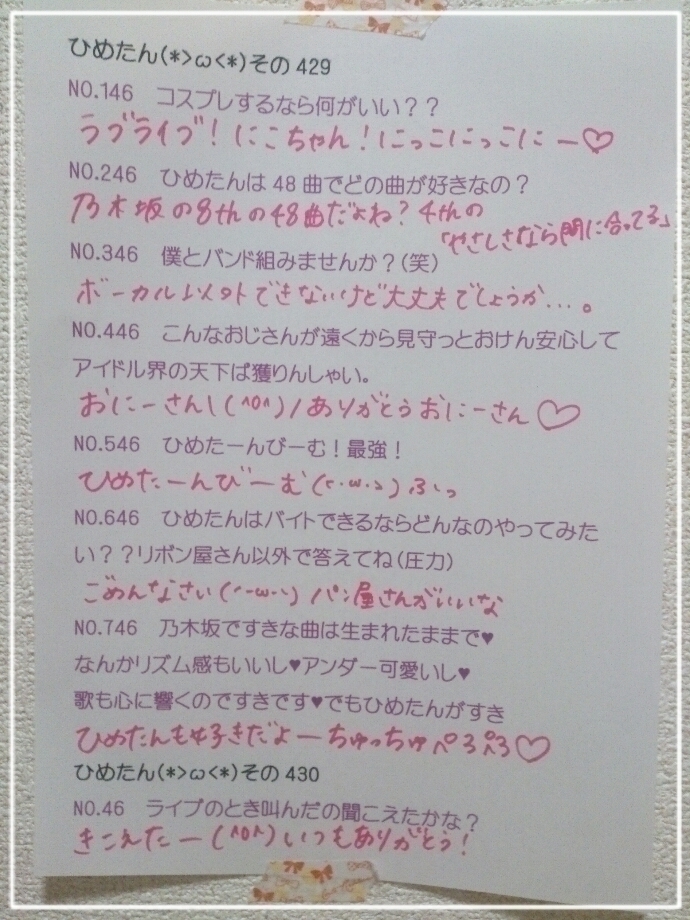 ひめたん(*>ω<*)その429
NO.146 コスプレするなら何がいい？？
ラブライブ！にこちゃん！にっこにっこにー♡
NO.246 ひめたんは48曲でどの曲が好きなの？
乃木坂の8thの48曲だよね？4thの
「やさしさなら間に合ってる」
NO.346 僕とバンド組みませんか？(笑)
ボーカル以外できないけど大丈夫でしょうか…。
NO.446 こんなおじさんが遠くから見守っとおけん安心して
アイドル界の天下ば獲りんしゃい。
おにーさん\(^o^)/ありがとうおにーさん♡
NO.546 ひめたーんびーむ！最強！
ひめたーんびーむ(´･ω･`)ふっ
NO.646 ひめたんはバイトできるならどんなのやってみた
い？？リボン屋さん以外で答えてね(圧力)
ごめんなさい(´-ω-`)パン屋さんがいいな
NO.746 乃木坂ですきな曲は生まれたままで♥
なんかリズム感もいいし♥アンダー可愛いし♥
歌も心に響くのですきです♥でもひめたんがすき
ひめたんも好きだよーちゅっちゅぺろぺろ♡
ひめたん(*>ω<*)その430
NO.46 ライブのとき叫んだの聞こえたかな？
きこえたー(^o^)いつもありがとう！